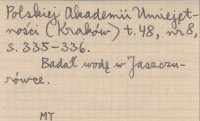 Polskiej Akademii Umiejęt-
ności (Kraków) t. 48, nr 8,
s. 335-336.
Badał wodę w Jaszczu-
rówce.
MT